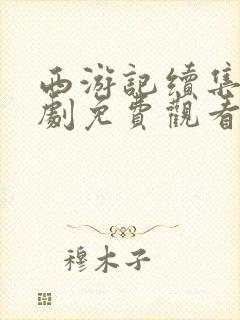 西游記續集
劇免費觀看
穆木子